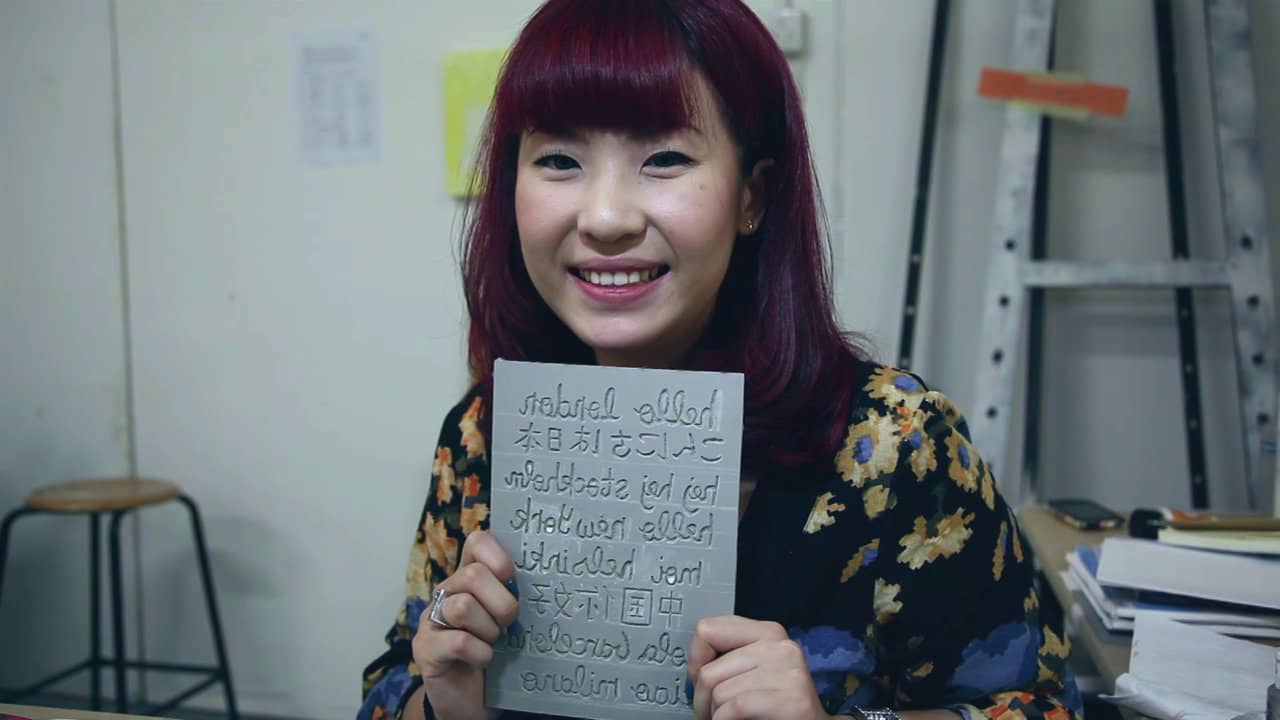 hello london
こんにちは日本
hej hej stockholm
hello new york
moi helsinki
中国你好
hola barcelona
ciao milano